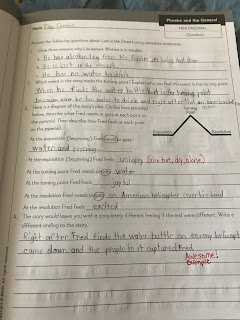 Phoebe and the General
MINI ORIGINAL
Questions
Name
Answer the following questions about Lost in the Desert using complete sentences.
1. Give three reasons why Lieutenant Watson is in trouble.
He has a broken leg from his fighter jet being shot down.
He is lost in the desert.
He has no water
2. Which event in the story marks the turning point? Explain why you feel this event is the turning point.
When he finds the water bottle that is the turning point
because now he has water to drink and right after that an
3. Here is a diagram of the story's plot. On the lines provided,
describe what Fred needs or gets at each point on
the pyramid. Then describe how Fred feels at each point
on the pyramid.
Exposition
Resolution
At the exposition (beginning) Fred needs or gets
water and rescuing
At the exposition (beginning) Fred feels unhappy (also hot, dry, alone)
At the turning point Fred needs or gets water
At the turning point Fred feels joyful
At the resolution Fred needs or gets an American helicopter over his head
At the resolution Fred feels excited
4. The story would leave you with a completely different feeling if the end were different. Write a
different ending to the story.
Right after Fred finds the water bottle an enemy helicopter
came down and the people in it captured Fred.
Awesome!
example